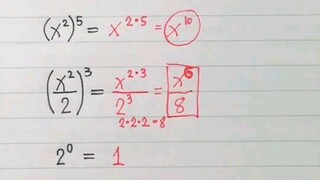 (x²)⁵ = x²·⁵ = x¹⁰
(x²/2)³ = x²·³/2³ = x⁶/8
2·2·2=8
2⁰ = 1